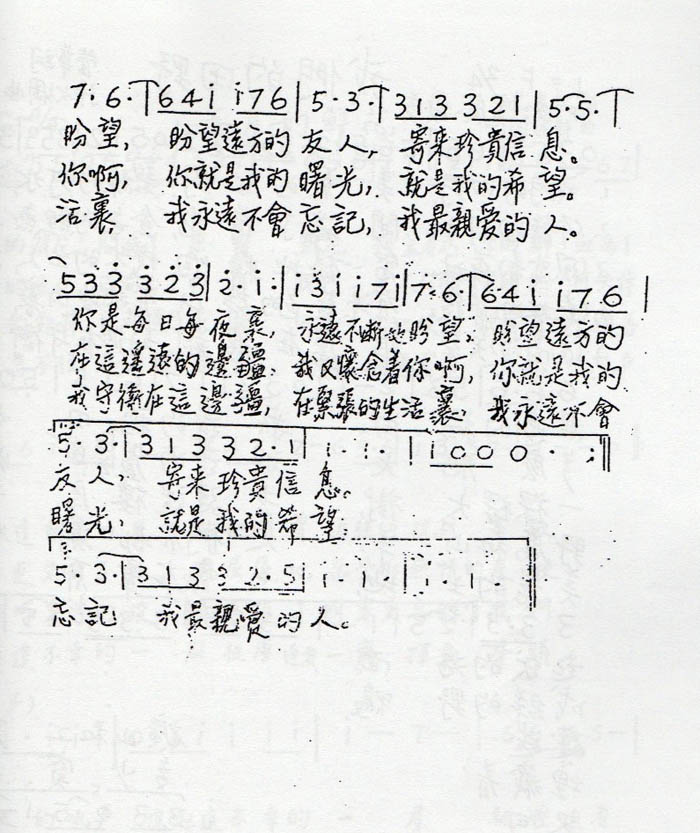 7· 6· | 6 4 i i 7 6 | 5· 3· | 3 1 3 3 2 1 | 5· 5· |
盼望, 盼望遠方的友人, 寄来珍貴信息。
你啊, 你就是我的曙光, 就是我的希望。
活裏, 我永遠不會忘記, 我最親爱的人。
5 3 3 3 2 3 | 2· i· | i 3 i i 7 i | 7· 6· | 6 4 i i 7 6 |
你是每日每夜裏, 永遠不断地盼望, 盼望遠方的
在這遥遠的邊疆, 我又懷念着你啊, 你就是我的
我守衛在這邊疆, 在緊張的生活裏, 我永遠不會
5· 3· | 3 1 3 3 2· 1 | i· i· | i 0 0 0 · :||
友人, 寄来珍貴信息。
曙光, 就是我的希望.
5· 3· | 3 1 3 3 2· 5 | i· · · | i· i· ||
忘記 我最親愛的人。